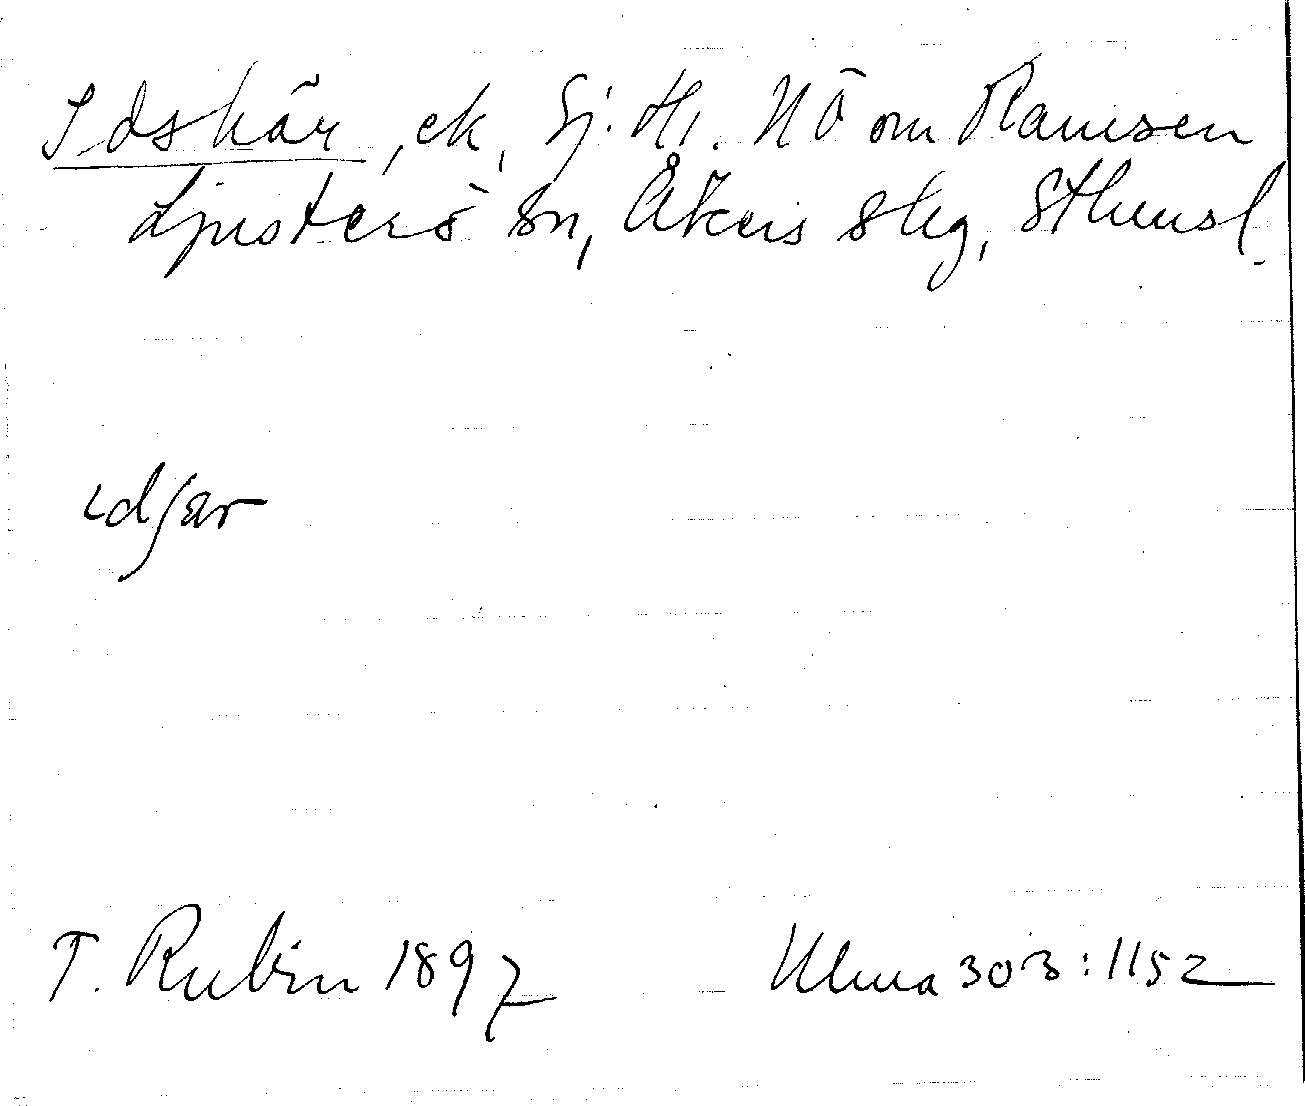 Idskär, ek, Sj. H. NÖ om Ramsen
Ljusterö sn, Åkers skg, Sthmsl.
T. Rubin 1897 Ulma 303:1152